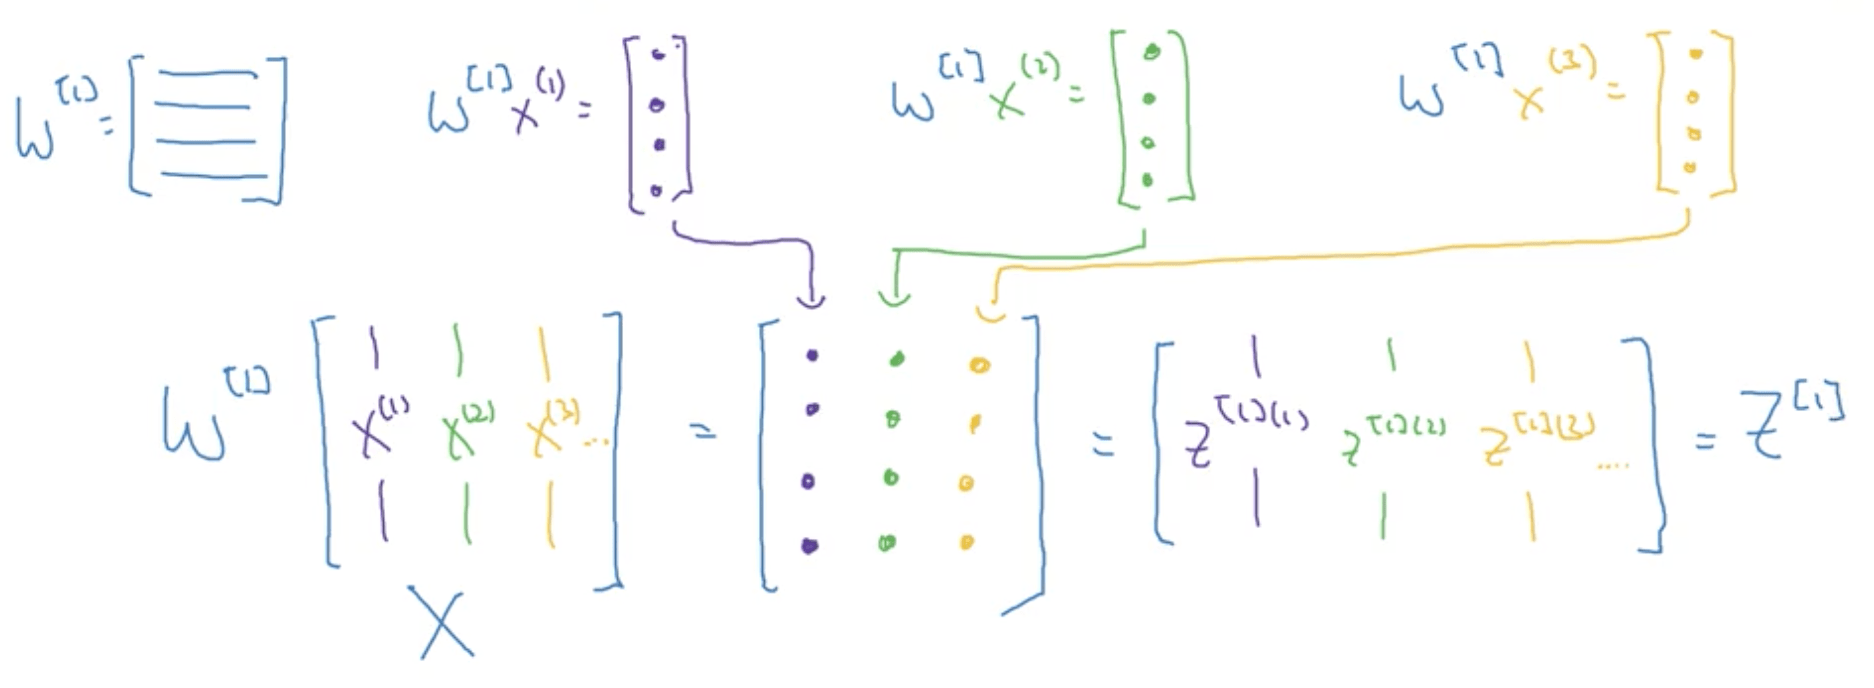 W[1] = W[1] x(1) = W[1] x(2) = W[1] x(3) =
W[1] x(1) x(2) x(3) ... = = z[1](1) z[1](2) z[1](3) .... = Z[1]
X